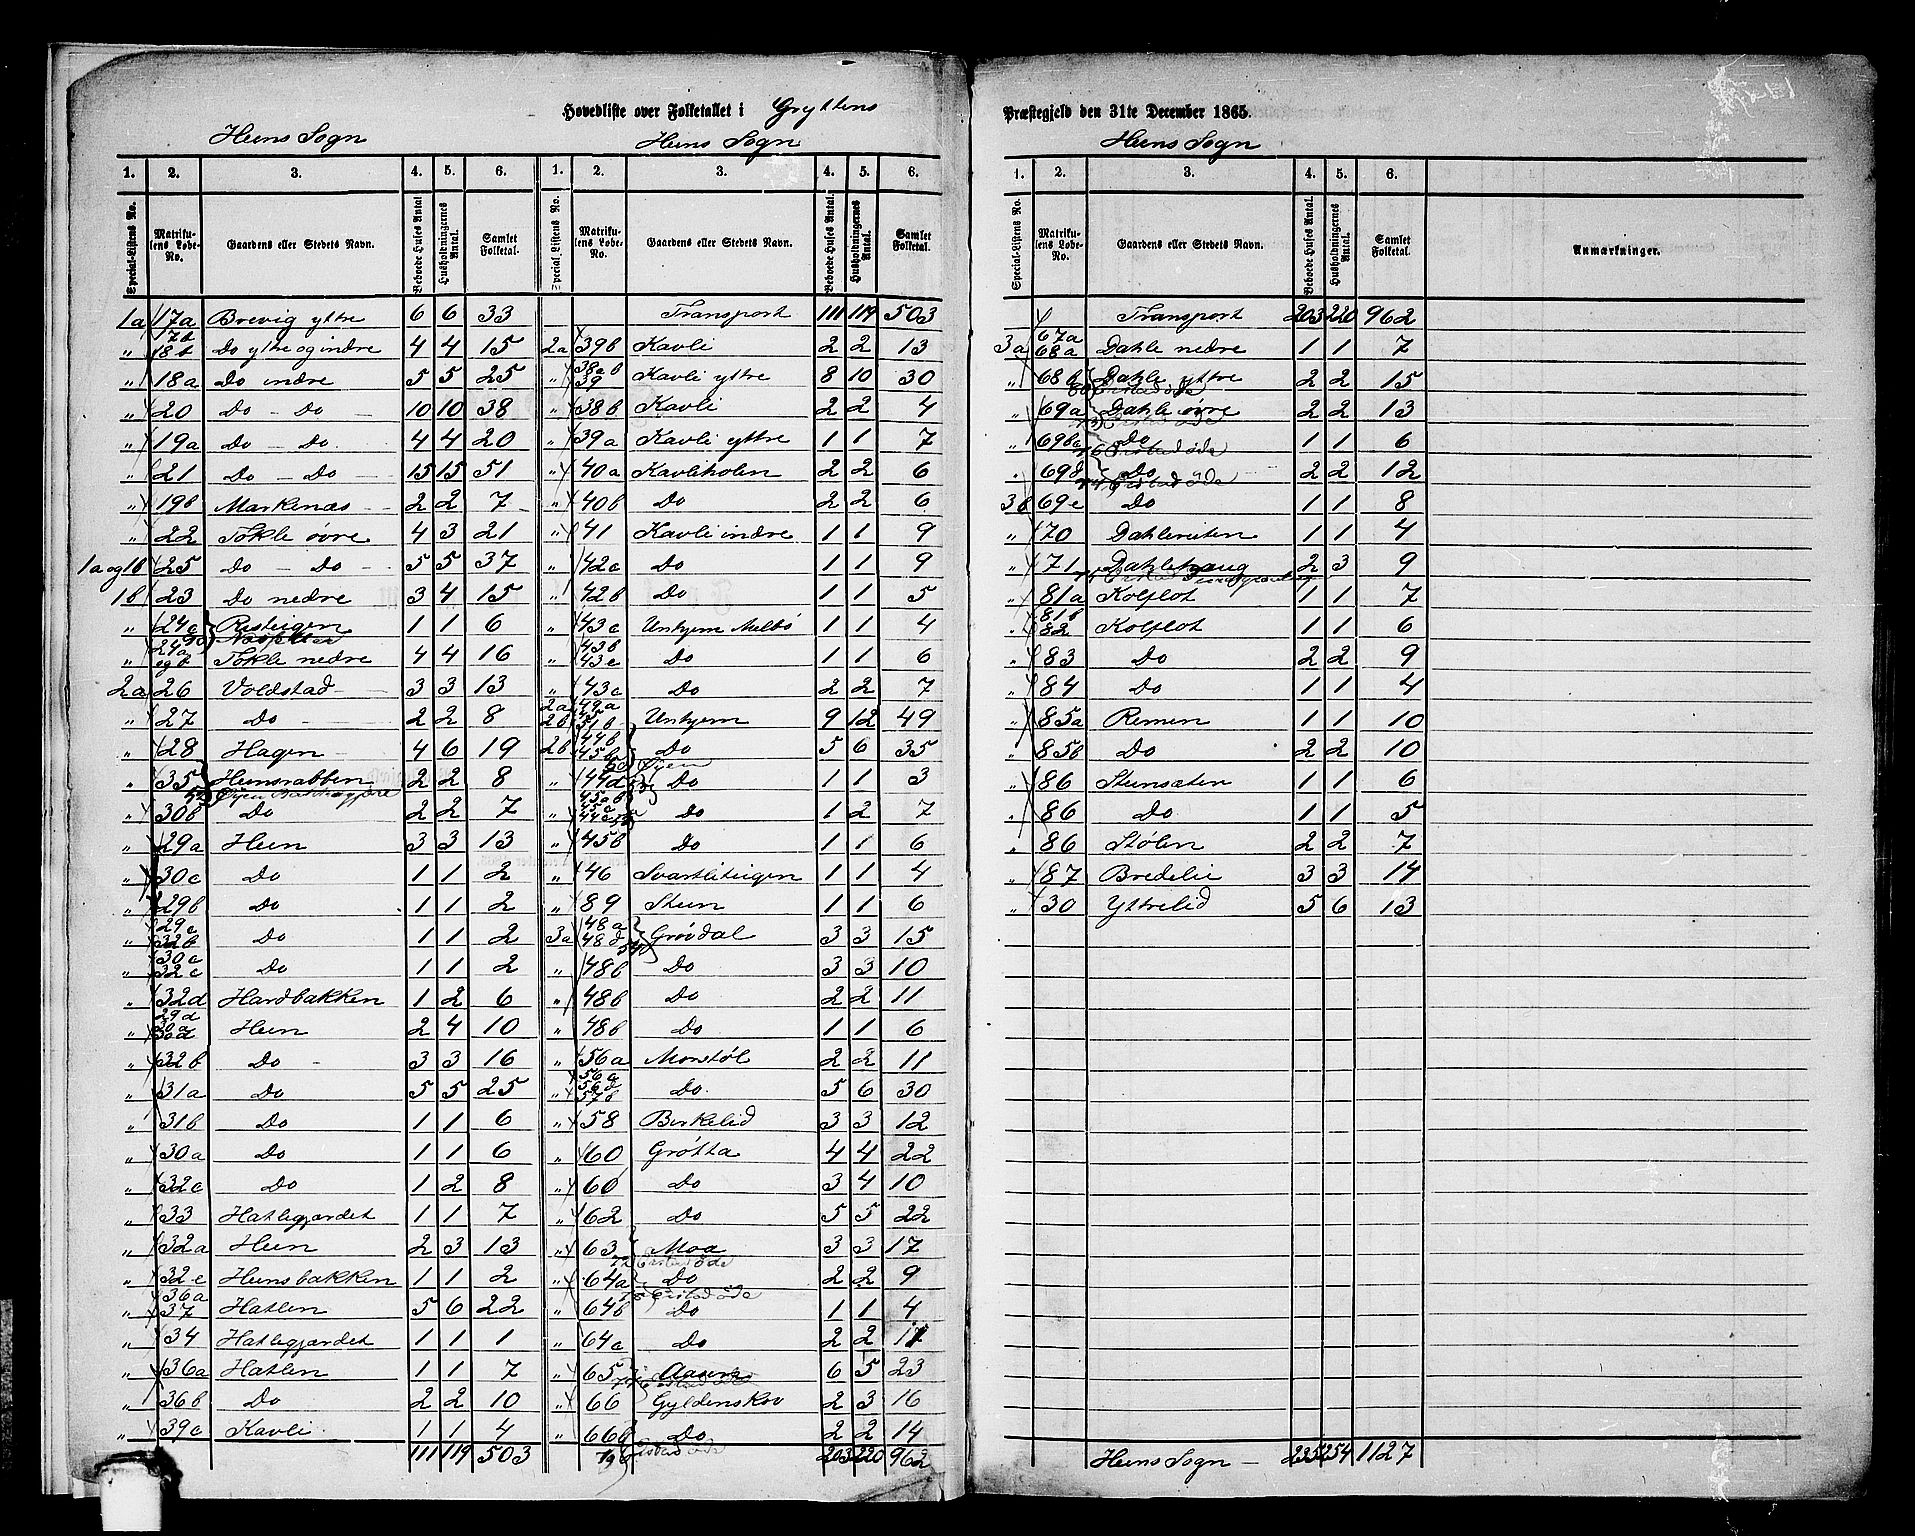 Hovedliste over Folketallet i Gryttens
Præstegjeld den 31te December 1865.
Heens Sogn
Heens Sogn
Heens Sogn
1. 2. 3. 4. 5. 6.
Special-Listens No. Matrikulens Løbe-No. Gaardens eller Stedets Navn. Beboede Huses Antal. Husholdningernes Antal. Samlet Folketal.
1a 17a Brevig ytre 6 6 33
" 17b 18b Do ytre og indre 4 4 15
" 18a Do indre 5 5 25
" 20 Do - Do 10 10 38
" 19a Do - Do 4 4 20
" 21 Do - Do 15 15 51
" 19b Markenæs 2 2 7
" 22 Tokle øvre 4 3 21
1a og 1b 25 Do - Do 5 5 37
1b 23 Do nedre 3 4 15
" 24c Risteigen 1 1 6
" 24a og b Tokle nedre 4 4 16
2a 26 Voldstad 3 3 13
" 27 Do 2 2 8
" 28 Hagen 4 6 19
" 35 Heensnabben 2 2 8
" 30b Do 2 2 7
" 29a Heen 3 3 13
" 30c Do 1 1 2
" 29b Do 1 1 2
" 29c 32b Do 1 1 2
" 30c 32c Do 1 1 2
" 32d Hardbakken 1 2 6
" 29d 30a Heen 2 4 10
" 32b Do 3 3 16
" 31a Do 5 5 25
" 31b Do 1 1 6
" 30a Do 1 1 6
" 32c Do 1 2 8
" 33 Hatlegjærdet 1 1 7
" 32a Heen 2 3 13
" 32e Heensbakken 1 1 2
" 36a 37 Hatlen 5 6 22
" 34 Hatlegjærdet 1 1 1
" 36a Hatlen 1 1 7
" 36b Do 2 2 10
" 39c Kavli 1 1 4
111 119 503
1. 2. 3. 4. 5. 6.
Special Listens No. Matrikulens Løbe-No. Gaardens eller Stedets Navn. Beboede Huses Antal. Husholdningernes Antal. Samlet Folketal.
Transport 111 119 503
2a 39b Kavli 2 2 13
" 38a b 39 Kavli ytre 8 10 30
" 38b Kavli 2 2 4
" 39a Kavli ytre 1 1 7
" 40a Kavliholen 2 2 6
" 40b Do 2 2 6
" 41 Kavli indre 1 1 9
" 42c Do 1 1 9
" 42b Do 1 1 5
" 43c Unhjem Melbø 1 1 4
" 43b 43c Do 1 1 6
" 43c Do 2 2 7
2a 2b 49a 51b Unhjem 9 12 49
2b 44b 45b Do 5 6 35
Øyen
" 44d Do 1 1 3
" 45a b 45c 44c Do 1 2 7
" 45b Do 1 1 6
" 46 Svartliteigen 1 1 4
" 89 Steen 1 1 6
3a 48a 48d Grøvdal 3 3 15
" 48b Do 3 3 10
" 48b Do 2 2 11
" 48b Do 1 1 6
" 56a Monstøl 2 2 11
" 56a 56d 57b Do 5 6 30
" 58 Birkelid 3 3 12
" 60 Grøtta 4 4 22
" 60 Do 3 4 10
" 62 Do 5 5 22
" 63 Moa 3 3 17
72 Erstad öde
" 64a Do 2 2 9
" 64b Do 1 1 4
" 64c Do 2 2 11
" 65 Aasen 6 5 23
" 66 Gyldenskov 2 3 16
" 66b Do 2 2 14
203 220 962
1. 2. 3. 4. 5. 6.
Special-Listens No. Matrikulens Løbe-No. Gaardens eller Stedets Navn. Beboede Huses Antal. Husholdningernes Antal. Samlet Folketal. Anmærkninger.
Transport 203 220 962
3a 67a 68a Dahle nedre 1 1 7
" 68b Dahle ytre 2 2 15
" 69a Dahle øvre 2 2 13
" 69bc Do 1 1 6
" 69d Do 2 2 12
3b 69e Do 1 1 8
" 70 Dahleviten 1 1 4
" 71 Dahlehaug 2 3 9
" 81a Kolflot 1 1 7
" 81b 82 Kolflot 1 1 6
" 83 Do 2 2 9
" 84 Do 1 1 4
" 85a Remen 1 1 10
" 85b Do 2 2 10
" 86 Steensæten 1 1 6
" 86 Do 1 1 5
" 86 Stølen 2 2 7
" 87 Bredelie 3 3 14
" 30 Ytrelid 5 6 13
Heens Sogn 235 254 1127